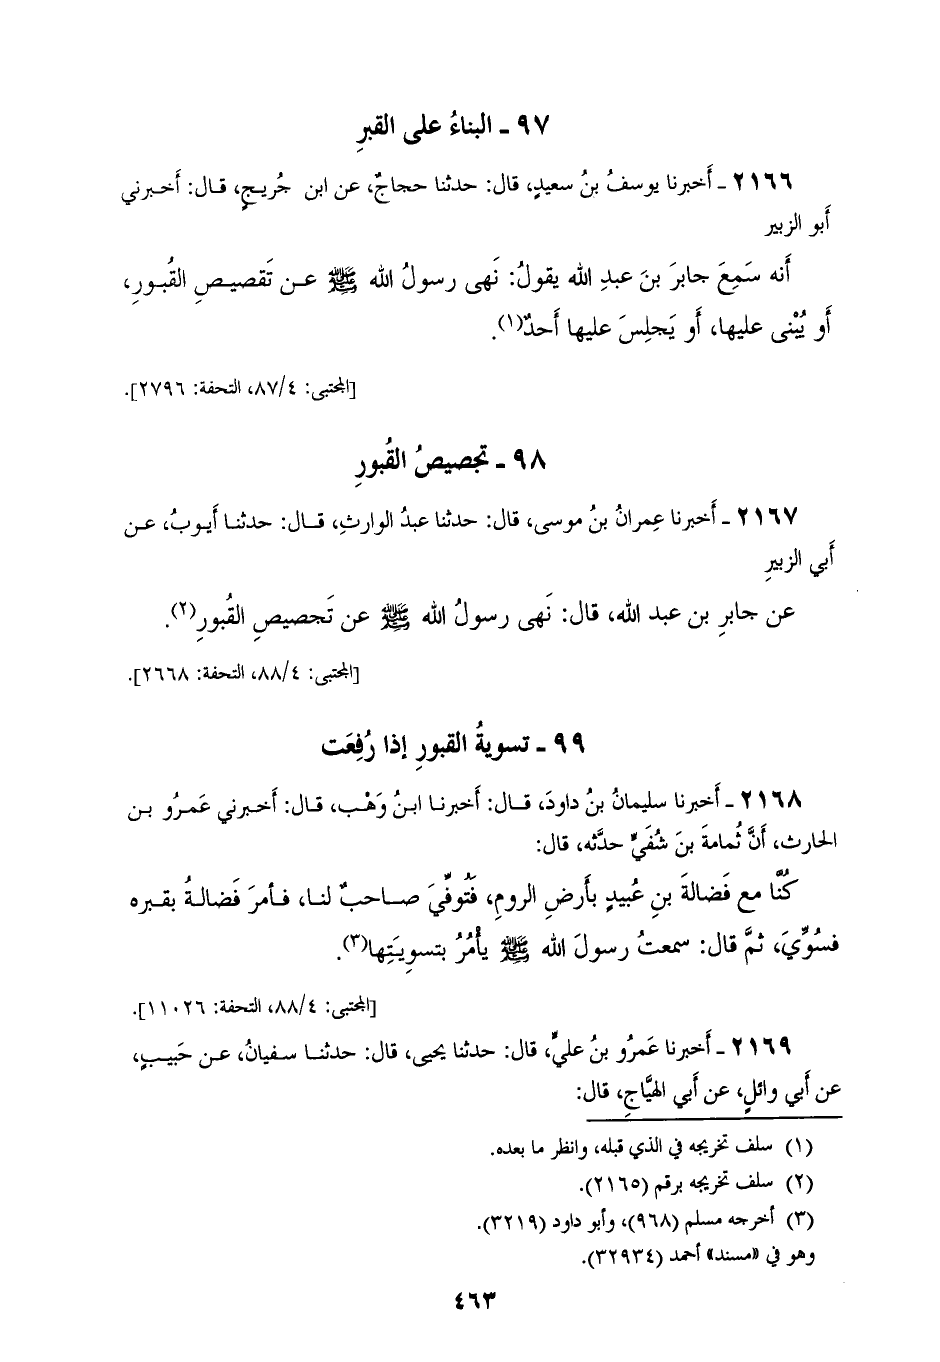 ٩٧ ـ البناءُ على القبرِ
٢١٦٦ ـ أَخبرنا يوسفُ بنُ سعيدٍ، قال: حدثنا حجاجٌ، عن ابن جُريجٍ، قـال: أَخـبرني
أَبو الزبير
أَنه سَمِعَ جابرَ بنَ عبدِ الله يقولُ: نَهى رسولُ الله ﷺ عـن تَقصيـصِ القُبـورِ،
أَو يُبْنى عليها، أَو يَجلِسَ عليها أَحدٌ(١).
[المجتبى: ٨٧/٤، التحفة: ٢٧٩٦].
٩٨ ـ تجصيصُ القُبورِ
٢١٦٧ ـ أَخبرنا عِمرانُ بنُ موسى، قال: حدثنا عبدُ الوارثِ، قـال: حدثنـا أَيـوبُ، عـن
أَبي الزبيرِ
عن جابرِ بن عبد الله، قال: نَهى رسولُ الله ﷺ عن تَجصيصِ القُبورِ(٢).
[المجتبى: ٨٨/٤، التحفة: ٢٦٦٨].
٩٩ ـ تسويةُ القبورِ إذا رُفِعَت
٢١٦٨ ـ أَخبرنا سليمانُ بنُ داودَ، قـال: أَخبرنـا ابنُ وَهْـب، قـال: أَخـبرني عَمـرُو بـن
الحارث، أَنَّ ثُمامةَ بنَ شُفَيٍّ حدَّثه، قال:
كُنَّا مع فَضالةَ بنِ عُبيدٍ بأَرضِ الرومِ، فَتُوفِّيَ صـاحبٌ لنـا، فـأمرَ فَضالـةُ بقـبره
فسُوِّيَ، ثمَّ قال: سمعتُ رسولَ الله ﷺ يأْمُرُ بتسويَتِها(٣).
[المجتبى: ٨٨/٤، التحفة: ١١٠٢٦].
٢١٦٩ ـ أَخبرنا عَمرُو بنُ عليٍّ، قال: حدثنا يحيى، قال: حدثنـا سـفيانُ، عـن حَبيـبٍ،
عن أَبي وائلٍ، عن أَبي الهيَّاجِ، قال:
(١) سلف تخريجه في الذي قبله، وانظر ما بعده.
(٢) سلف تخريجه برقم (٢١٦٥).
(٣) أخرجه مسلم (٩٦٨)، وأبو داود (٣٢١٩).
وهو في «مسند» أحمد (٣٢٩٣٤).
٤٦٣